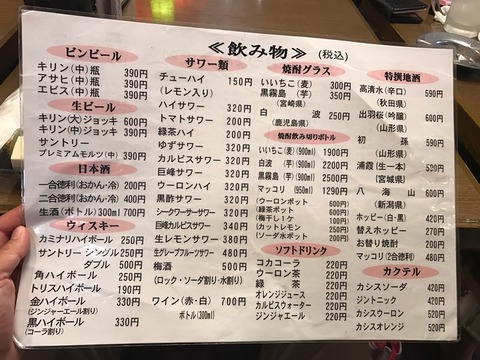 ≪飲み物≫ (税込)
ビンビール
キリン(中)瓶 390円
アサヒ(中)瓶 390円
エビス(中)瓶 390円
生ビール
キリン(大)ジョッキ 600円
キリン(中)ジョッキ 390円
サントリー
プレミアムモルツ(中) 390円
日本酒
一合徳利(おかん・冷) 200円
二合徳利(おかん・冷) 400円
生酒(ボトル)300ml 700円
ウィスキー
カミナリハイボール 250円
サントリー シングル 250円
ダブル 500円
角ハイボール 250円
トリスハイボール 190円
金ハイボール 330円
(ジンジャーエール割り)
黒ハイボール 330円
(コーラ割り)
サワー類
チューハイ 150円
(レモン入り)
ハイサワー 320円
トマトサワー 200円
緑茶ハイ 200円
ゆずサワー 320円
カルピスサワー 320円
巨峰サワー 320円
ウーロンハイ 320円
黒酢サワー 320円
シークワーサーサワー 320円
巨峰カルピスサワー 340円
生レモンサワー 380円
生グレープフルーツサワー 460円
梅酒 500円
(ロック・ソーダ割り・水割り)
ワイン(赤・白) 700円
ボトル(300ml)
焼酎グラス
いいちこ(麦) 300円
黒霧島(芋) 350円
(宮崎県)
白波 250円
(鹿児島県)
焼酎飲み切りボトル
いいちこ(麦)(900ml) 1900円
白波(芋)(900ml) 2200円
黒霧島(芋)(900ml) 2500円
マッコリ(950ml) 1290円
ウーロンボット 600円
緑茶ボット 600円
梅干し1ケ 100円
カットレモン 200円
ソーダ水ボット 200円
ソフトドリンク
コカコーラ 220円
ウーロン茶 220円
緑茶 220円
オレンジジュース 220円
カルピスウォーター 220円
ジンジャエール 220円
特撰地酒
高清水(辛口) 590円
(秋田県)
出羽桜(吟醸) 600円
(山形県)
初孫 590円
(山形県)
浦霞(生一本) 590円
(宮城県)
八海山 600円
(新潟県)
ホッピー(白・黒) 420円
替えホッピー 270円
お替り焼酎 200円
マッコリ(2合徳利) 480円
カクテル
カシスソーダ 420円
ジントニック 420円
カシスウーロン 420円
カシスオレンジ 520円